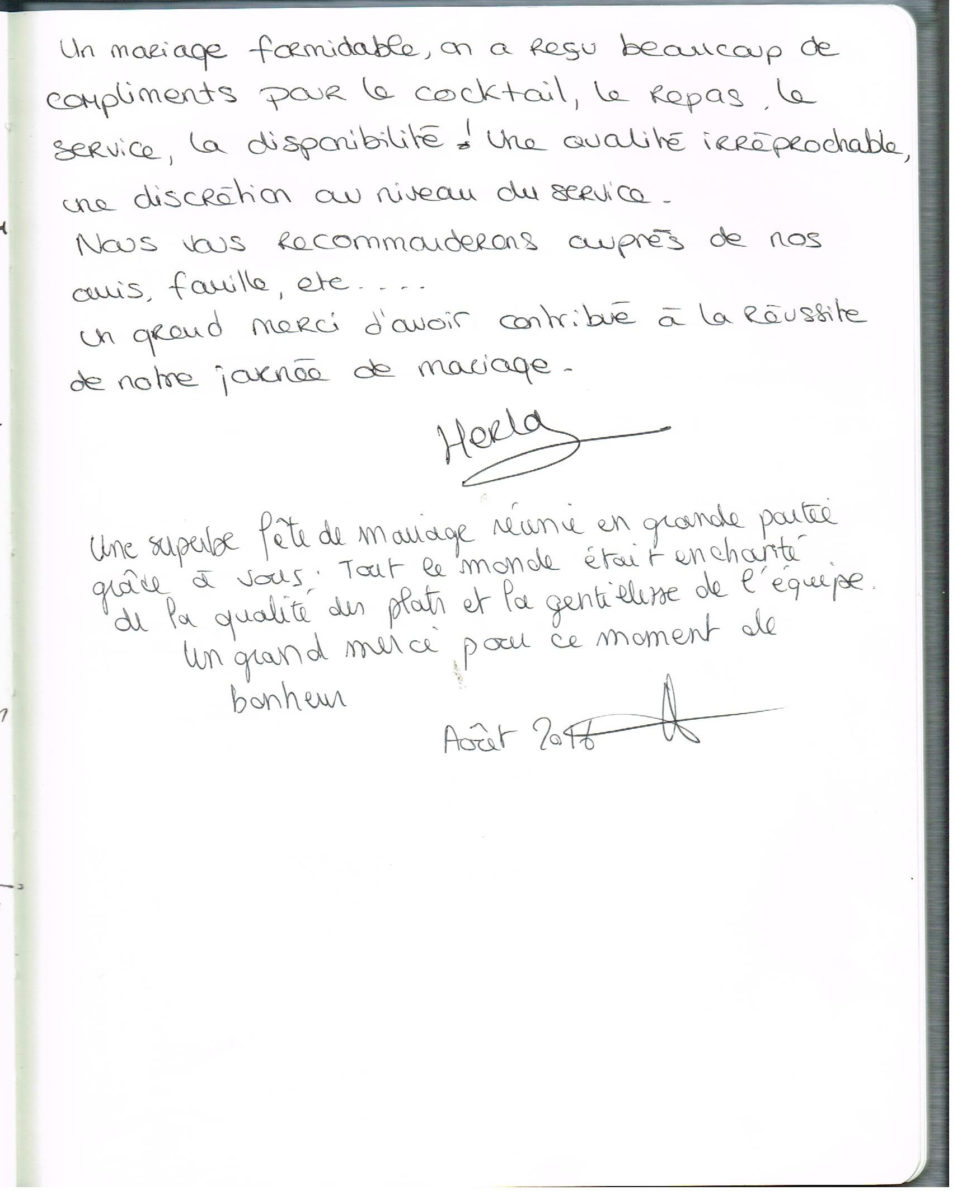 Un mariage formidable, on a reçu beaucoup de
compliments pour le cocktail, le repas, le
service, la disponibilité ! Une qualité irréprochable,
une discrétion au niveau du service.
Nous vous recommanderons auprès de nos
amis, famille, etc....
un grand merci d'avoir contribué à la réussite
de notre journée de mariage.
Une superbe fête de mariage réunie en grande partie
grâce à vous. Tout le monde était enchanté
de la qualité des plats et la gentillesse de l'équipe.
Un grand merci pour ce moment de
bonheur
Août